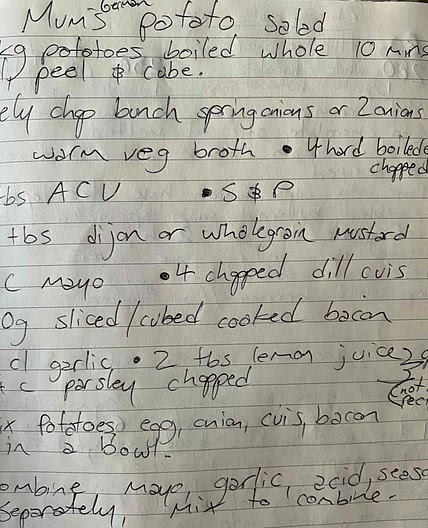 Mum's German potato salad
kg potatoes boiled whole 10 mins
peel & cube.
ely chop bunch spring onions or 2 onions
warm veg broth • 4 hard boiled
chopped
bs ACV • S & P
tbs dijon or wholegrain mustard
C mayo • 4 chopped dill cuis
0g sliced/cubed cooked bacon
cl garlic • 2 tbs lemon juice
c parsley chopped
(not
x potatoes, egg, onion, cuis, bacon
in a bowl.
ombine mayo, garlic, acid, seaso
separately, mix to combine.